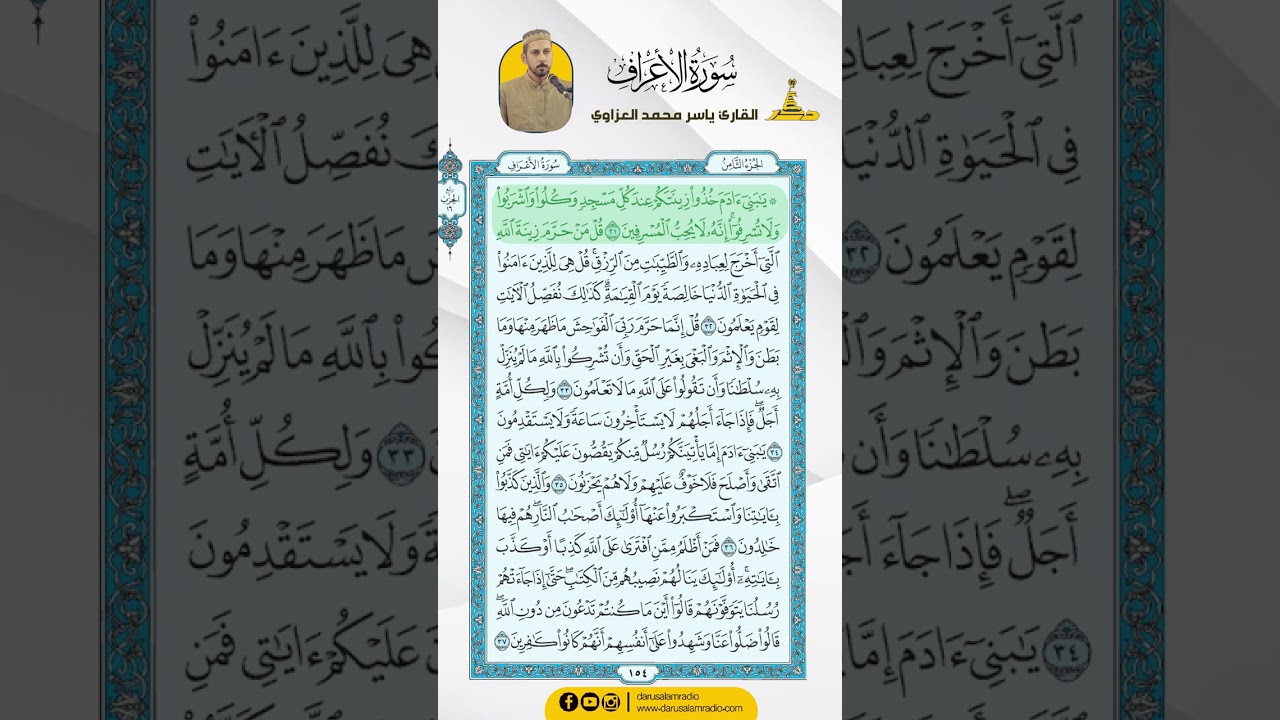 سُورَةُ الأَعْرَافِ
القارئ ياسر محمد العزاوي
الجُزْءُ الثَّامِنُ
سُورَةُ الأَعْرَافِ
ربع
الحزب
١٦
۞ يَٰبَنِىٓ ءَادَمَ خُذُوا۟ زِينَتَكُمْ عِندَ كُلِّ مَسْجِدٍ وَكُلُوا۟ وَٱشْرَبُوا۟
وَلَا تُسْرِفُوٓا۟ ۚ إِنَّهُۥ لَا يُحِبُّ ٱلْمُسْرِفِينَ ٣١ قُلْ مَنْ حَرَّمَ زِينَةَ ٱللَّهِ
ٱلَّتِىٓ أَخْرَجَ لِعِبَادِهِۦ وَٱلطَّيِّبَٰتِ مِنَ ٱلرِّزْقِ ۚ قُلْ هِىَ لِلَّذِينَ ءَامَنُوا۟
فِى ٱلْحَيَوٰةِ ٱلدُّنْيَا خَالِصَةً يَوْمَ ٱلْقِيَٰمَةِ ۗ كَذَٰلِكَ نُفَصِّلُ ٱلْءَايَٰتِ
لِقَوْمٍ يَعْلَمُونَ ٣٢ قُلْ إِنَّمَا حَرَّمَ رَبِّىَ ٱلْفَوَٰحِشَ مَا ظَهَرَ مِنْهَا وَمَا
بَطَنَ وَٱلْإِثْمَ وَٱلْبَغْىَ بِغَيْرِ ٱلْحَقِّ وَأَن تُشْرِكُوا۟ بِٱللَّهِ مَا لَمْ يُنَزِّلْ
بِهِۦ سُلْطَٰنًا وَأَن تَقُولُوا۟ عَلَى ٱللَّهِ مَا لَا تَعْلَمُونَ ٣٣ وَلِكُلِّ أُمَّةٍ
أَجَلٌ ۖ فَإِذَا جَآءَ أَجَلُهُمْ لَا يَسْتَأْخِرُونَ سَاعَةً وَلَا يَسْتَقْدِمُونَ
٣٤ يَٰبَنِىٓ ءَادَمَ إِمَّا يَأْتِيَنَّكُمْ رُسُلٌ مِّنكُمْ يَقُصُّونَ عَلَيْكُمْ ءَايَٰتِى فَمَنِ
ٱتَّقَىٰ وَأَصْلَحَ فَلَا خَوْفٌ عَلَيْهِمْ وَلَا هُمْ يَحْزَنُونَ ٣٥ وَٱلَّذِينَ كَذَّبُوا۟
بِـَٔايَٰتِنَا وَٱسْتَكْبَرُوا۟ عَنْهَآ أُو۟لَٰٓئِكَ أَصْحَٰبُ ٱلنَّارِ ۖ هُمْ فِيهَا
خَٰلِدُونَ ٣٦ فَمَنْ أَظْلَمُ مِمَّنِ ٱفْتَرَىٰ عَلَى ٱللَّهِ كَذِبًا أَوْ كَذَّبَ
بِـَٔايَٰتِهِۦٓ ۚ أُو۟لَٰٓئِكَ يَنَالُهُمْ نَصِيبُهُم مِّنَ ٱلْكِتَٰبِ ۖ حَتَّىٰٓ إِذَا جَآءَتْهُمْ
رُسُلُنَا يَتَوَفَّوْنَهُمْ قَالُوٓا۟ أَيْنَ مَا كُنتُمْ تَدْعُونَ مِن دُونِ ٱللَّهِ ۖ
قَالُوا۟ ضَلُّوا۟ عَنَّا وَشَهِدُوا۟ عَلَىٰٓ أَنفُسِهِمْ أَنَّهُمْ كَانُوا۟ كَٰفِرِينَ ٣٧
١٥٤
darusalamradio
www.darusalamradio.com